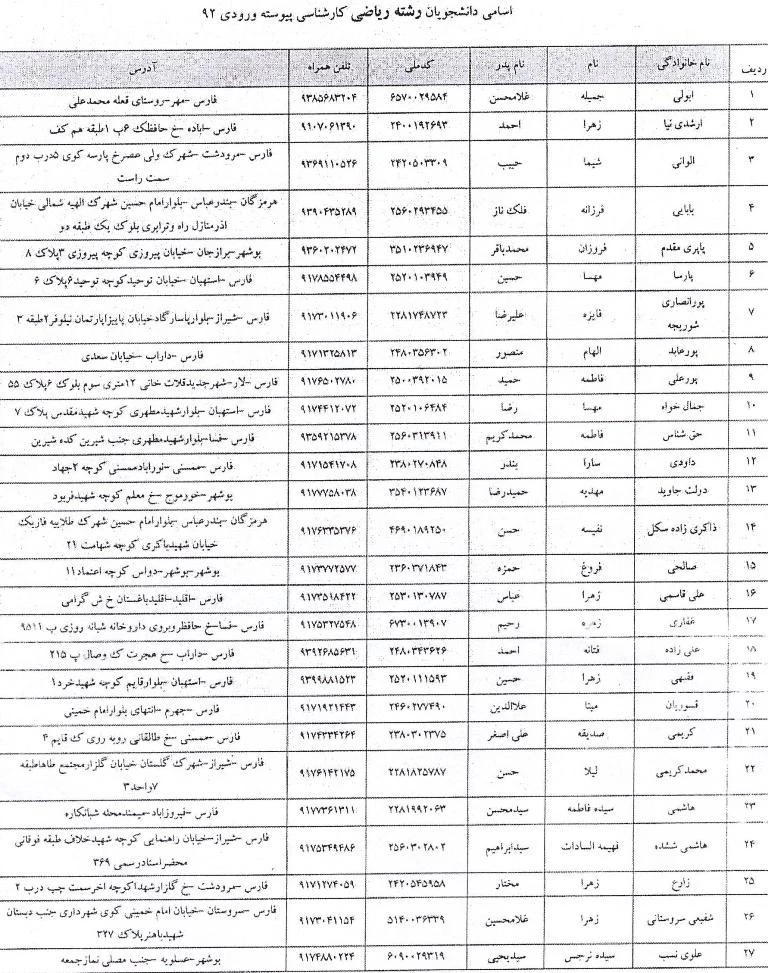 اسامی دانشجویان رشته ریاضی کارشناسی پیوسته ورودی ۹۲
ردیف نام خانوادگی نام نام پدر کدملی تلفن همراه آدرس
۱ ابولی جمیله غلامحسن ۶۵۷۰۰۲۹۵۸۴ ۹۳۸۵۶۸۳۲۰۴ فارس -مهر-روستای قعله محمدعلی
۲ ارشدی نیا زهرا احمد ۲۴۰۰۱۹۲۶۹۳ ۹۱۰۷۰۶۱۳۹۰ فارس -اباده -خ حافظلک ۶ب ۱طبقه هم کف
۳ الوانی شیما حبیب ۲۴۲۰۵۰۳۳۰۹ ۹۳۶۹۱۱۰۵۲۶ فارس -مرودشت -شهرک ولی عصرخ پارسه کوی ۵درب دوم
سمت راست
۴ بابایی فرزانه فلک ناز ۲۵۶۰۲۹۳۴۵۵ ۹۳۹۰۴۳۵۲۸۹ هرمزگان -بندرعباس -بلوارامام حسین شهرک الهیه شمالی خیابان
اذرمنازل راه وترابری بلوک یک طبقه دو
۵ پاپری مقدم فروزان محمدباقر ۳۵۱۰۲۳۶۹۴۷ ۹۳۶۰۲۰۲۴۷۲ بوشهر-برازجان -خیابان پیروزی کوچه پیروزی ۳پلاک ۸
۶ پارسا مهسا حسین ۲۵۲۰۱۰۳۹۴۹ ۹۱۷۸۵۵۴۴۹۸ فارس -استهبان -خیابان توحیدکوچه توحید۶پلاک ۶
۷ پورانصاری فایزه علیرضا ۲۲۸۱۷۴۸۷۲۳ ۹۱۷۳۰۱۱۹۰۶ فارس -شیراز-بلوارپاسارگادخیابان پاییزاپارتمان نیلوفر۲طبقه ۳
شوریجه
۸ پورعابد الهام منصور ۲۴۸۰۳۵۶۳۰۲ ۹۱۷۱۳۲۵۸۱۳ فارس -داراب -خیابان سعدی
۹ پورعلی فاطمه حمید ۲۵۰۰۳۹۲۰۱۵ ۹۱۷۶۵۰۲۷۸۰ فارس -لار-شهرجدیدقلات خانی ۱۲متری سوم بلوک ۶پلاک ۵۵
۱۰ جمال خواه مهسا رضا ۲۵۲۰۱۰۶۴۸۴ ۹۱۷۴۴۱۲۰۷۲ فارس -استهبان -بلوارشهیدمطهری کوچه شهیدمقدس پلاک ۷
۱۱ حق شناس فاطمه محمدکریم ۲۵۶۰۳۱۳۹۱۱ ۹۳۵۹۲۱۵۳۷۸ فارس -فسا-بلوارشهیدمطهری جنب شیرین کده شیرین
۱۲ داودی سارا بندر ۲۳۸۰۲۷۰۸۴۸ ۹۱۷۱۵۴۱۷۰۸ فارس -ممسنی -نورابادممسنی کوچه ۲جهاد
۱۳ دولت جاوید مهدیه حمیدرضا ۳۵۴۰۱۲۳۶۸۷ ۹۱۷۷۷۵۸۰۳۸ بوشهر-خورموج -خ معلم کوچه شهیدفربود
۱۴ ذاکری زاده سکل نفیسه حسن ۴۶۹۰۱۸۹۲۵۰ ۹۱۷۶۳۳۵۳۷۶ هرمزگان -بندرعباس -بلوارامام حسین شهرک طلاییه فازیک
خیابان شهیدباکری کوچه شهامت ۲۱
۱۵ صالحی فروغ حمزه ۲۳۶۰۳۷۱۸۴۳ ۹۱۷۳۷۷۲۵۷۷ بوشهر-بوشهر-دواس کوچه اعتماد۱۱
۱۶ علی قاسمی زهرا عباس ۲۵۳۰۱۳۰۷۸۷ ۹۱۷۳۵۱۸۴۲۲ فارس -اقلید-اقلیدباغستان خ ش گرامی
۱۷ غفاری زهره رحیم ۶۷۳۰۰۱۳۹۰۷ ۹۱۷۵۳۲۷۵۴۸ فارس -فسا-خ حافظروبروی داروخانه شبانه روزی پ ۹۵۱۱
۱۸ علی زاده فتانه احمد ۲۴۸۰۳۴۳۶۲۶ ۹۳۹۲۶۸۵۶۳۱ فارس -داراب -خ هجرت ک وصال پ ۲۱۵
۱۹ فقیهی زهرا حسین ۲۵۲۰۱۱۱۵۹۳ ۹۳۹۹۸۸۱۵۲۳ فارس -استهبان -بلوارقایم کوچه شهیدخرد۱
۲۰ قسوریان مینا علاالدین ۲۴۶۰۲۷۷۴۹۰ ۹۱۷۱۹۲۱۴۴۳ فارس -جهرم -انتهای بلوارامام خمینی
۲۱ کریمی صدیقه علی اصغر ۲۳۸۰۳۰۲۳۷۵ ۹۱۷۴۳۳۴۲۶۴ فارس -ممسنی -خ طالقانی روبه روی ک قایم ۴
۲۲ محمدکریمی لیلا حسن ۲۲۸۱۸۲۵۷۸۷ ۹۱۷۶۱۴۲۱۷۵ فارس -شیراز-شهرک گلستان خیابان گلزارمجتمع طاهاطبقه
۷واحد۳
۲۳ هاشمی سیده فاطمه سیدمحسن ۲۲۸۱۹۹۲۰۶۳ ۹۱۷۷۳۶۱۳۱۱ فارس -فیروزاباد-میمندمحله شبانکاره
۲۴ هاشمی ششده فهیمه السادات سیدابراهیم ۲۵۶۰۳۰۲۸۰۲ ۹۱۷۵۳۴۹۴۸۶ فارس -شیراز-خیابان راهنمایی کوچه شهیدخلاف طبقه فوقانی
محضراسنادرسمی ۳۶۹
۲۵ زارع زهرا مختار ۲۴۲۰۵۴۵۹۵۸ ۹۱۷۱۲۷۴۰۵۹ فارس -مرودشت -خ گلزارشهداکوچه اخرسمت چپ درب ۲
۲۶ شفیعی سروستانی زهرا غلامحسین ۵۱۴۰۰۳۶۳۳۹ ۹۱۷۳۰۴۱۱۵۴ فارس -سروستان -خیابان امام خمینی کوی شهرداری جنب دبستان
شهیدباهنرپلاک ۳۲۷
۲۷ علوی نسب سیده نرجس سیدیحیی ۶۰۹۰۰۲۹۳۱۹ ۹۱۷۴۸۹۰۲۲۴ بوشهر-عسلویه -جنب مصلی نمازجمعه